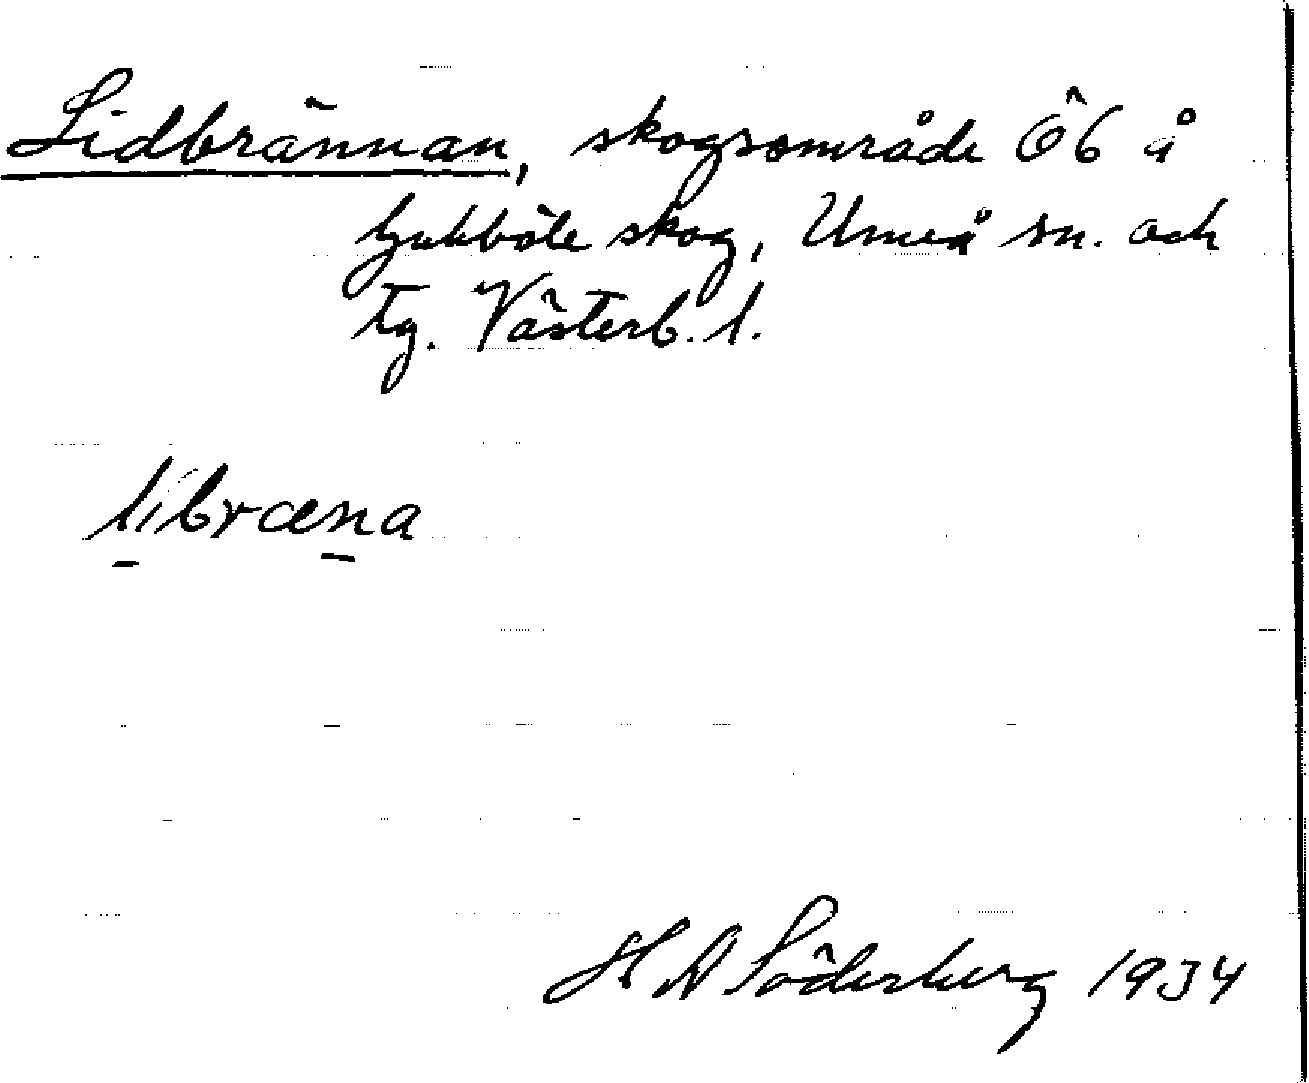 Lidbrännan, skogsområde Ö6 å
Ljubböle skog, Umeå sn. och
tg. Västerb. l.
libræna
H A Söderberg 1934